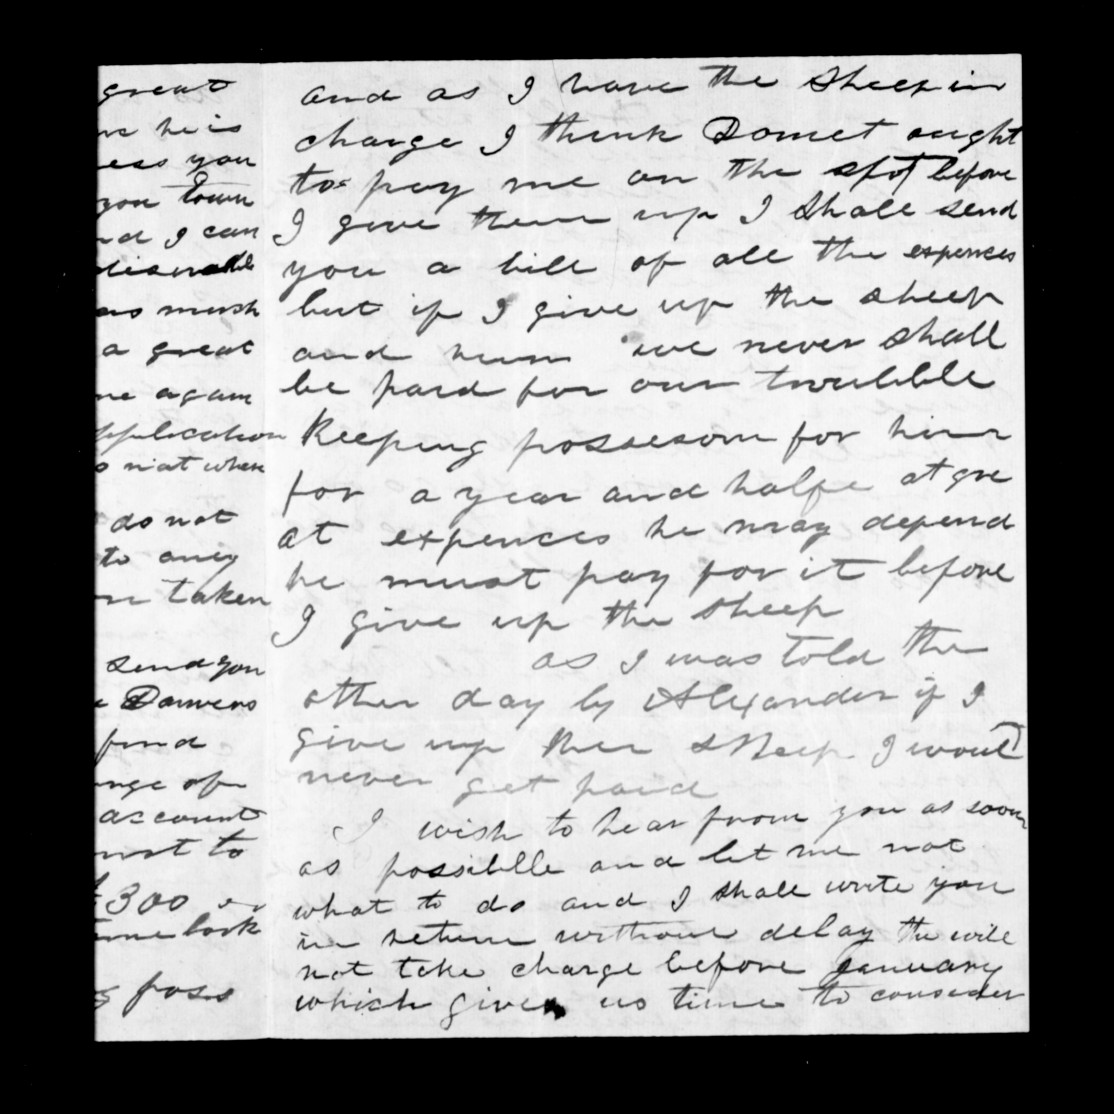 great
he is
ess you
you town
nd I can
as mush
a great
me again
pplication
o not when
do not
to any
n taken
send you
e Danvers
find
nge of
account
not to
£300
time look
g poss
and as I have the sheep in
charge I think Domet ought
to pay me on the spot before
I give them up I shall send
you a bill of all the expences
but if I give up the sheep
and run we never shall
be paid for our troubble
Keeping possesom for him
for a year and halfe at gre
at expences he may depend
he must pay for it before
I give up the sheep
as I was told the
other day by Alexander if I
give up ther sheep I would
never get paid
I wish to hear from you as soon
as possiblle and let me not
what to do and I shall write you
in return without delay the will
not take charge before January
which gives us time to consider